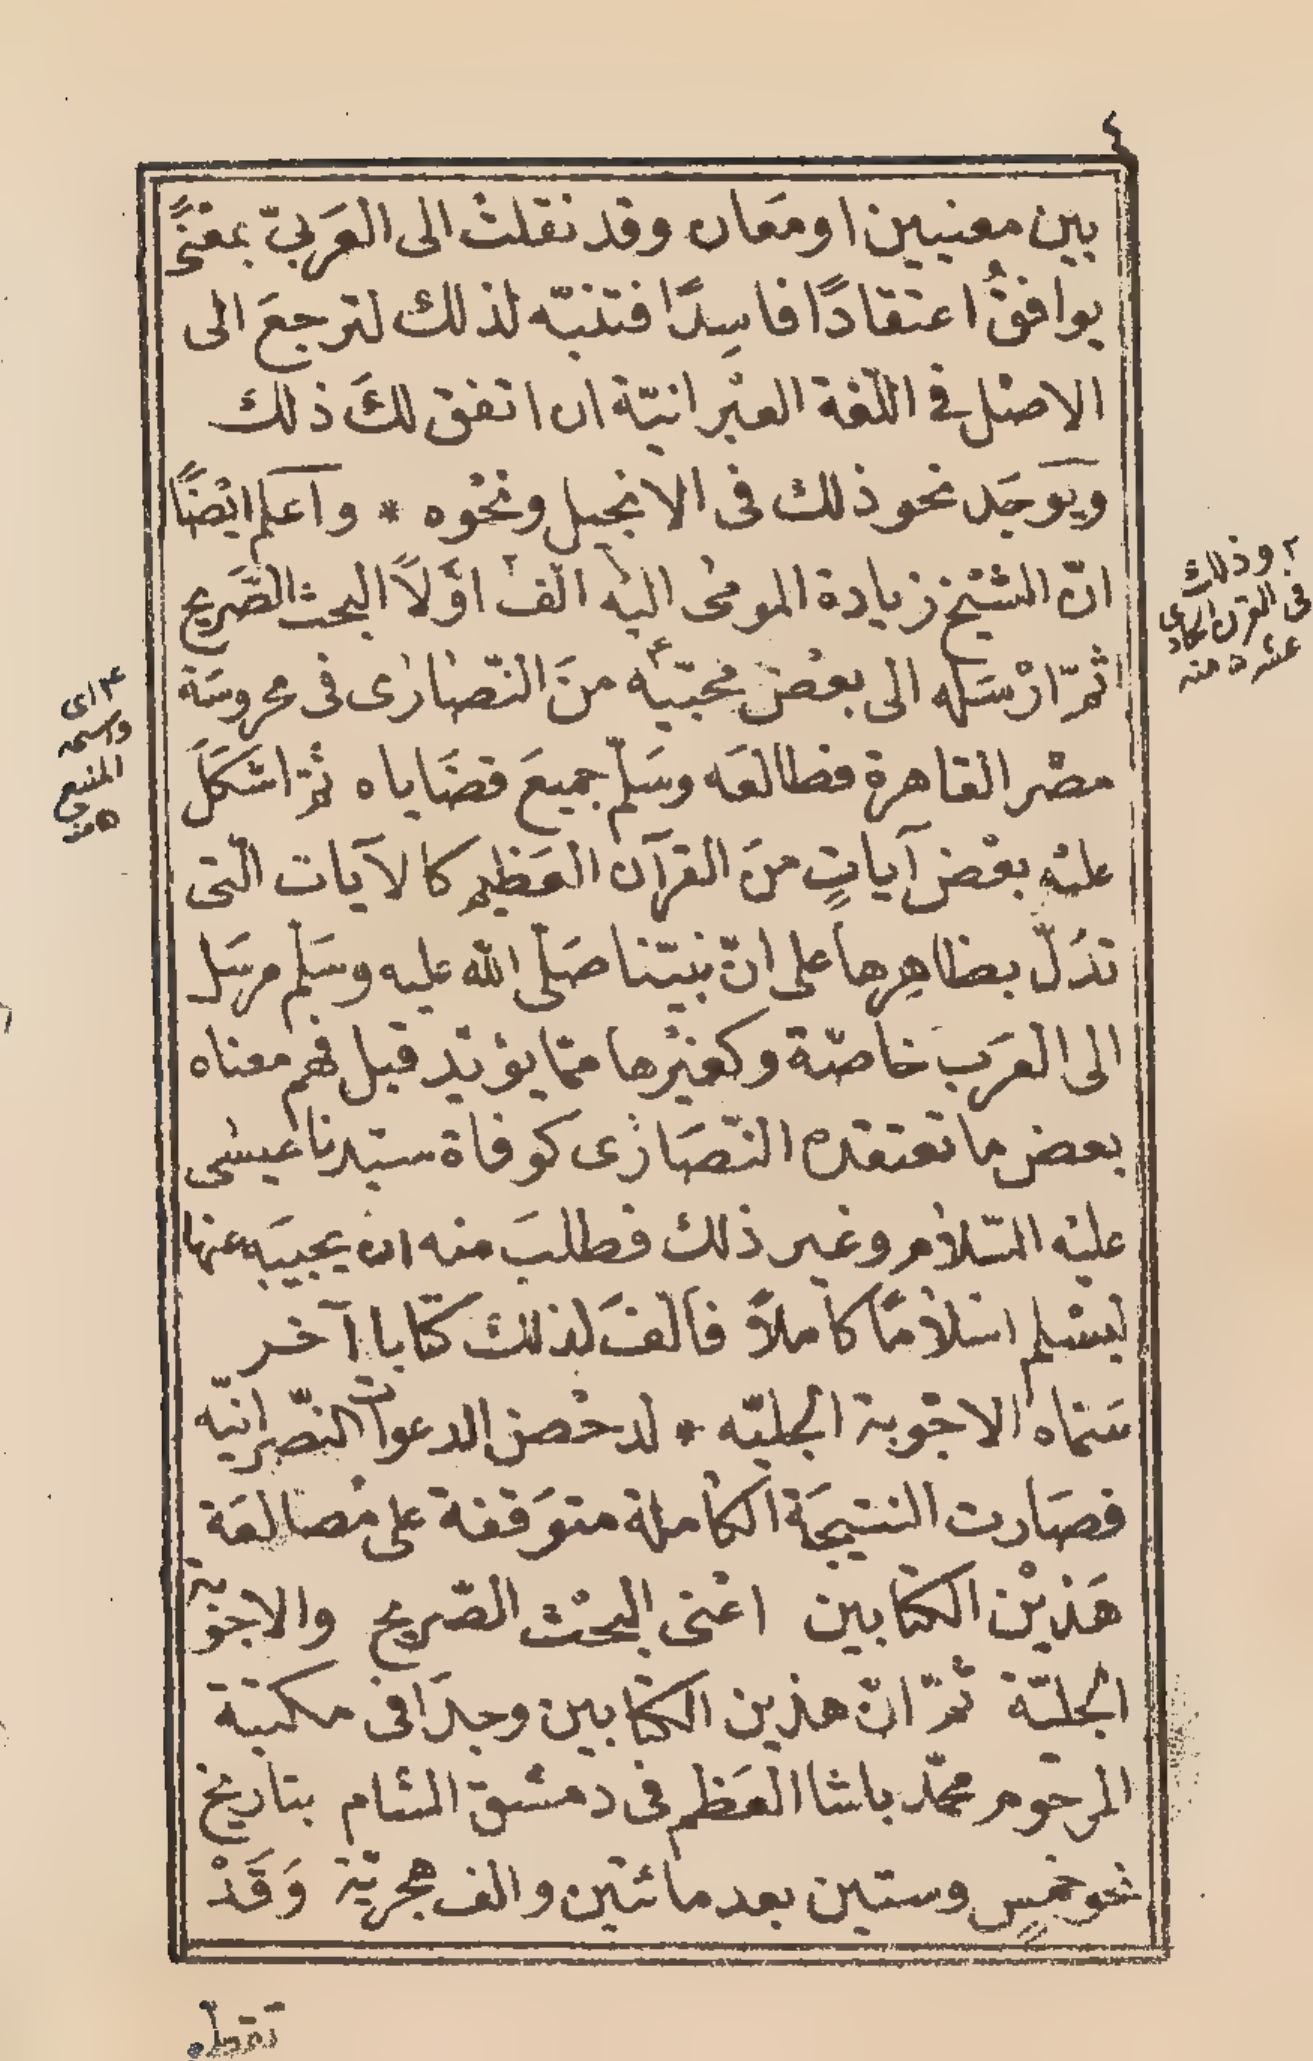 ٤
بين معنيين او معان وقد نقلت الى العَربيّ بمعْنًى
يوافقُ اعتقادًا فاسِدًا فتنبّه لذلك لترجعَ الى
الاصْل في اللّغة العبْرانيّة ان اتفق لكَ ذلك
ويوجَد نحو ذلك فى الانجيل ونحْوه * واعلم ايْضًا
انّ الشيْخ زيادة المومٰى اليْه الّف ٢ اوّلاً البحث الصَّريح
ثمّ ارْسَله الى بعْض محبّيه ٣ منَ النّصَارٰى فى محروسَة
مصْر القاهرة فطالعَه وسَلّم جميعَ قضَاياه ثمّ اشكَلَ
عليْه بعْض آياتٍ منَ القرآن العَظيم كالآيات الّتى
تدُلّ بظاهِرها على انّ نبيّنا صَلّى الله عليه وسَلّم مرسَل
الى العَرَب خاصّة وكغيْرها ممّا يؤيّد قبل فهْم معناه
بعض ما تعتقده النّصَارٰى كوفاة سيّدنا عيسٰى
عليْه السّلام وغير ذلك فطلبَ منه ان يجيبَه عنها
ليسْلم اسْلامًا كاملاً فالّفَ لذلك كتابا آخر
سَمّاه الاجْوبة الجليّه * لدحْض الدعوات النّصرانيّه
فصَارت النتيجَة الكاملة متوَقفة على مُطالعَة
هَذيْن الكتابين اعْنى البحْث الصّريح والاجوبة
الجليّة ثمّ انّ هذين الكتابين وجدَا فى مكتبة
المرحوم محمّد باشا العَظم فى دمشق الشام بتاريخ
نحو خمسٍ وستين بعد مائتين والف هجريّة وَقَدْ
٢ وذلك
فى القرن الحادى
عشر ه منه
٣ اى
واسمه